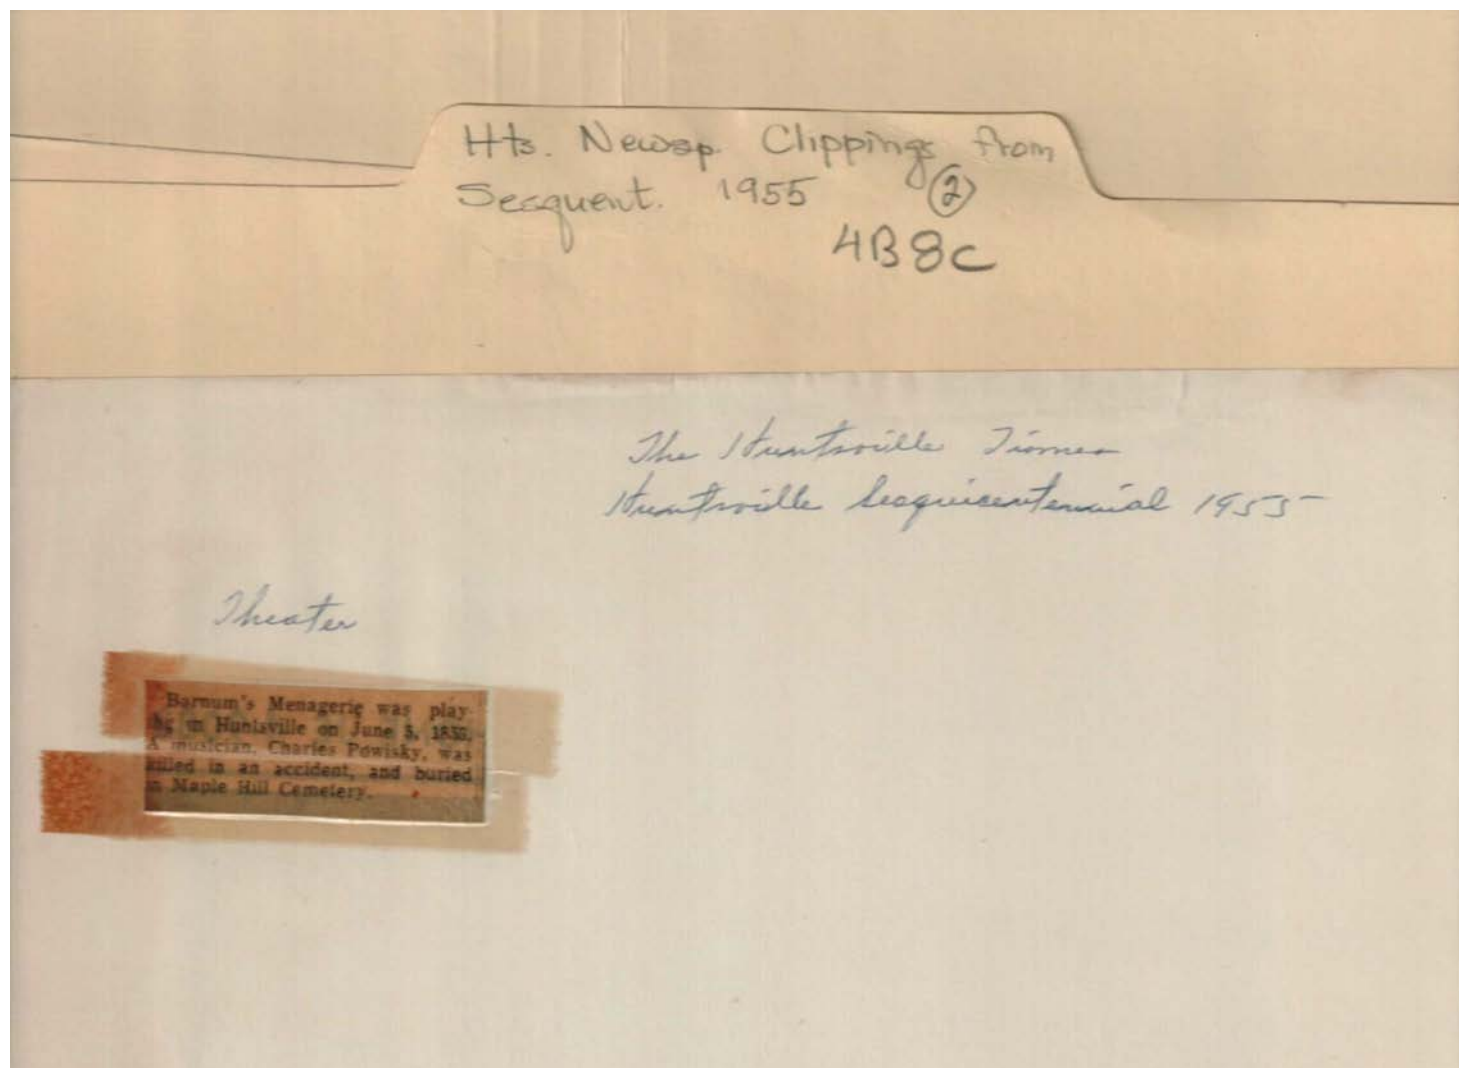 Hts. Newsp. Clippings from
Sesquent. 1955 ②
4B8C
The Huntsville Times
Huntsville Sesquicentennial 1955
Theater
Barnum's Menagerie was play-
in Huntsville on June
A musician, Charles Powisky, was
killed in an accident, and buried
in Maple Hill Cemetery.